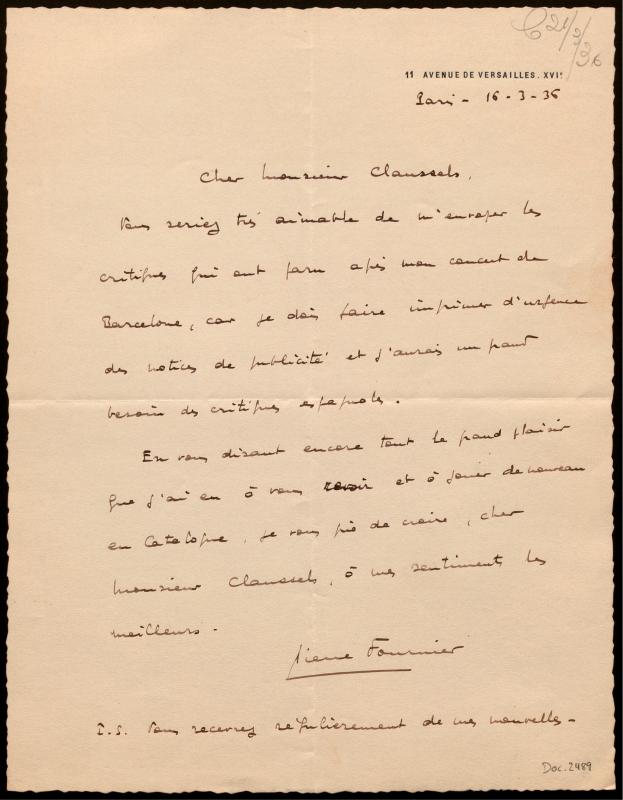 C 21/3/36
11 AVENUE DE VERSAILLES. XVIE
Paris - 16 - 3 - 36
Cher Monsieur Claussels,
Vous seriez très aimable de m'envoyer les
critiques qui ont paru après mon concert de
Barcelone, car je dois faire imprimer d'urgence
des notices de publicité et j'aurais un grand
besoin des critiques espagnoles.
En vous disant encore tout le grand plaisir
que j'ai eu à vous revoir et à jouer de nouveau
en Catalogne, je vous prie de croire, cher
Monsieur Claussels, à mes sentiments les
meilleurs.
Pierre Fournier
P.S. Vous recevrez régulièrement de mes nouvelles -
Doc. 2489